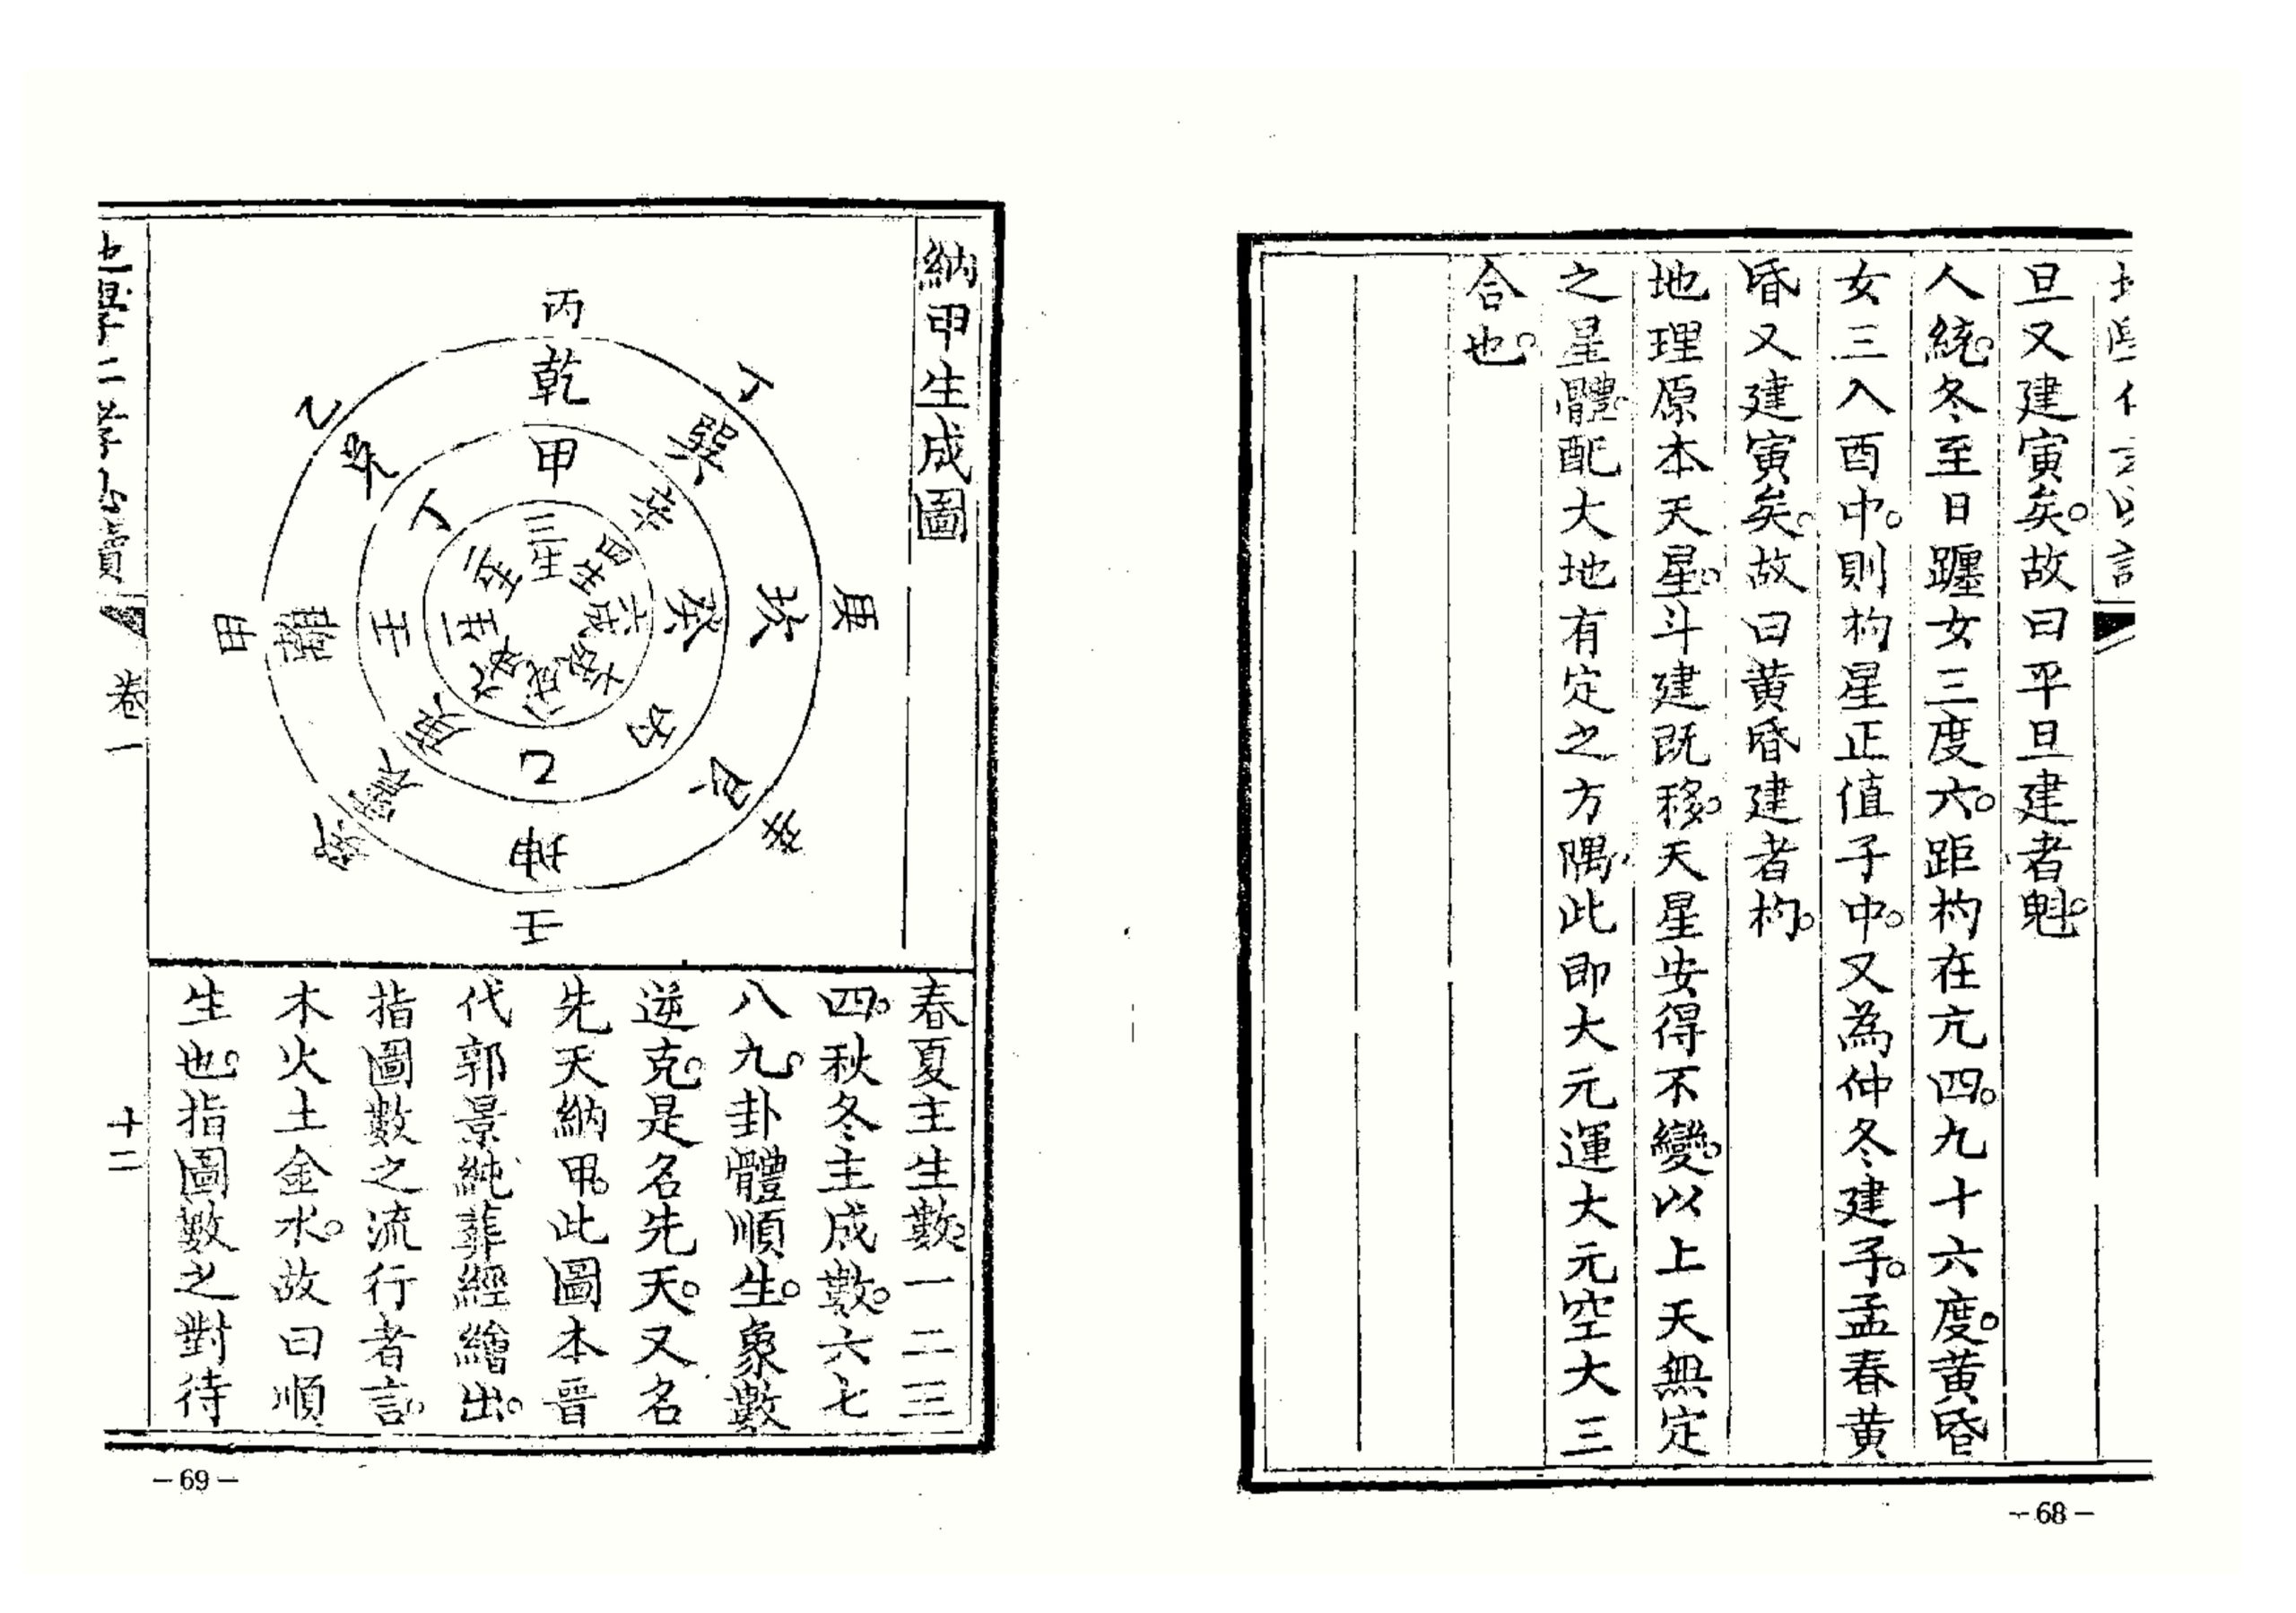 旦又建寅矣。故曰平旦建者魁。
人統。冬至日躔女三度六。距杓在亢四。九十六度。黃昏
女三入酉中。則杓星正值子中。又為仲冬建子。孟春黃
昏又建寅矣。故曰黃昏建者杓。
地理原本天星。斗建既移。天星安得不變。以上天無定
之星體。配大地有定之方隅。此即大元運大元空大三
合也。
－68－
納甲生成圖
丙
丁
庚
癸
壬
乙
甲
乾
巽
坎
艮
坤
離
兌
甲
辛
癸
丙
乙
庚
壬
丁
三生
四生
六成
七成
八成
九成
一生
二生
春夏主生數。一二三
四。秋冬主成數。六七
八九。卦體順生。象數
逆克。是名先天。又名
先天納甲。此圖本晉
代郭景純葬經繪出。
指圖數之流行者言。
木火土金水。故曰順
生也。指圖數之對待
卷一
十二
－69－